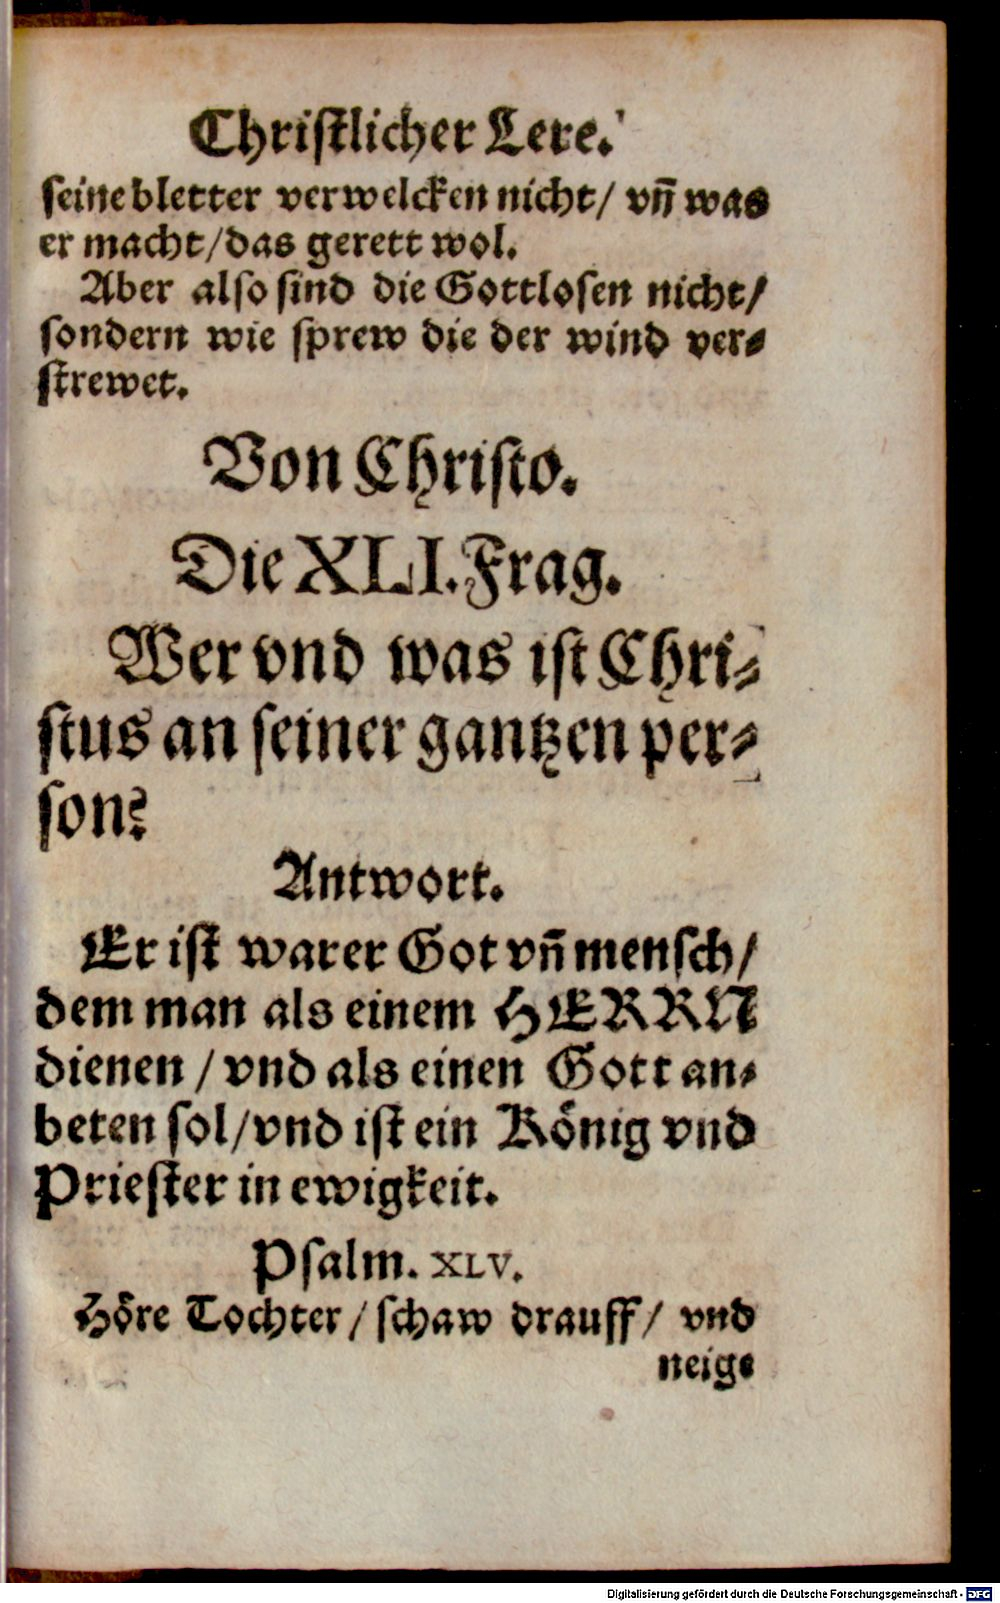 Christlicher Lere.
seine bletter verwelcken nicht/ vñ was
er macht/das gerett wol.
Aber also sind die Gottlosen nicht/
sondern wie sprew die der wind ver⸗
strewet.
Von Christo.
Die XLI. Frag.
Wer vnd was ist Chri⸗
stus an seiner gantzen per⸗
son?
Antwort.
Er ist warer Got vñ mensch/
dem man als einem HERRN
dienen / vnd als einen Gott an⸗
beten sol/vnd ist ein König vnd
Priester in ewigkeit.
Psalm. XLV.
Höre Tochter / schaw drauff / vnd
neige
Digitalisierung gefördert durch die Deutsche Forschungsgemeinschaft - DFG